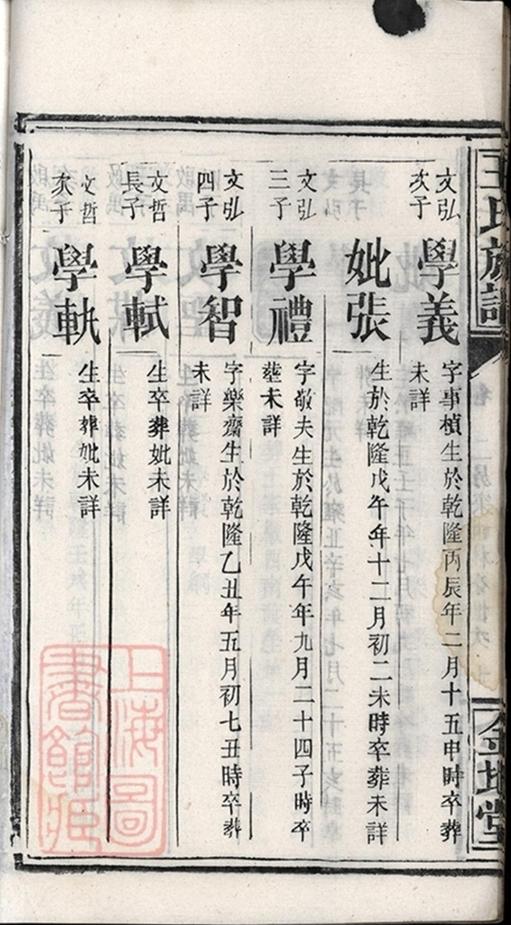 王氏族譜
文弘
次子
學義
字事楨生於乾隆丙辰年二月十五申時卒葬
未詳
妣張
生於乾隆戊午年十二月初二未時卒葬未詳
文弘
三子
學禮
字敬夫生於乾隆戊午年九月二十四子時卒
塟未詳
文弘
四子
學智
字樂齋生於乾隆乙丑年五月初七丑時卒葬
未詳
文哲
長子
學軾
生卒葬妣未詳
文哲
次子
學
生卒葬妣未詳
上海圖
書館藏